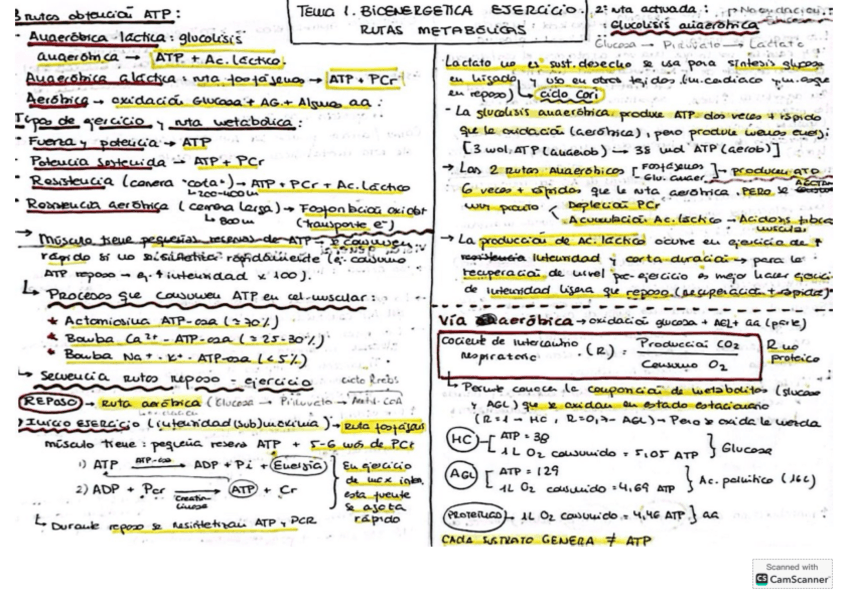 3 rutas obtención ATP:
- Anaeróbica láctica: glucolisis
anaeróbica → ATP + Ac. láctico
Anaeróbica aláctica: ruta fosfágenos → ATP + PCr
Aeróbica → oxidación Glucosa + AG + Algunos aa:
Tipos de ejercicio y ruta metabólica:
- Fuerza y potencia → ATP
- Potencia sostenida → ATP + PCr
- Resistencia (carrera "corta") → ATP + PCr + Ac. Láctico
↳ 200-400m
- Resistencia aeróbica (carrera larga) → Fosforilación oxidat
↳ 800m (transporte e-)
→ Músculo tiene pequeñas reservas de ATP → se consumen
rápido si no se sintetiza rápidamente (ej. consumo
ATP reposo → ej. ↑ intensidad x 100).
↳ Procesos que consumen ATP en cel. muscular:
* Actomiosina ATP-asa (≈ 70%)
* Bomba Ca2+ - ATP-asa (≈ 25-30%)
* Bomba Na+ - K+ - ATP-asa (< 5%)
↳ Secuencia rutas reposo - ejercicio ciclo Krebs
REPOSO → Ruta aeróbica (Glucosa → Piruvato → Acetil-CoA
INICIO EJERCICIO (intensidad (sub)máxima) → Ruta fosfágenos
músculo tiene: pequeña reserva ATP + 5-6 más de PCr
1) ATP ATP-asa → ADP + Pi + Energía
2) ADP + PCr Creatin kinasa → ATP + Cr
En ejercicio
de máx inten.
esta fuente
se agota
rápido
↳ Durante reposo se resintetizan ATP y PCR
TEMA 1. BIOENERGÉTICA EJERCICIO.
RUTAS METABÓLICAS
2ª ruta activada:
Glucolisis anaeróbica
Glucosa → Piruvato → Lactato
Lactato no es sust. desecho se usa para síntesis glucosa
en hígado y uso en otros tejidos (m. cardiaco y m. esque
en reposo) ↳ ciclo Cori
- La glucolisis anaeróbica produce ATP dos veces + rápido
que la oxidación (aeróbica), pero produce menos energ:
[3 mol. ATP (anaerob) → 38 mol ATP (aerob)]
→ Las 2 Rutas Anaeróbicas [Fosfágenos Gluc. anaer.] → producen ATP
6 veces + rápidos que la ruta aeróbica. PERO se AGOTAN
muy pronto Depleción PCr
Acumulación Ac. láctico → Acidosis fibra
muscular
→ La producción de Ac. láctico ocurre en ejercicio de ↑
resistencia intensidad y corta duración → para la
recuperación de nivel pre-ejercicio es mejor hacer ejercic
de intensidad ligera que reposo (recuperación + rápida)
Vía aeróbica → oxidación glucosa + AGL + aa (parte)
Cociente de intercambio
respiratorio . (R) = Producción CO2 / Consumo O2
R no
proteico
↳ Permite conocer la composición de metabolitos (glucosa
y AGL) que se oxidan en estado estacionario
(R=1 → HC, R=0,7 → AGL) → Pero se oxida la mezcla
HC - [ATP = 38
1L O2 consumido = 5,05 ATP } Glucosa
AGL [ATP = 129
1L O2 consumido = 4,69 ATP } Ac. palmítico (16C)
PROTEINAS → 1L O2 consumido = 4,46 ATP } aa
CADA SUSTRATO GENERA ≠ ATP
Scanned with
CS CamScanner